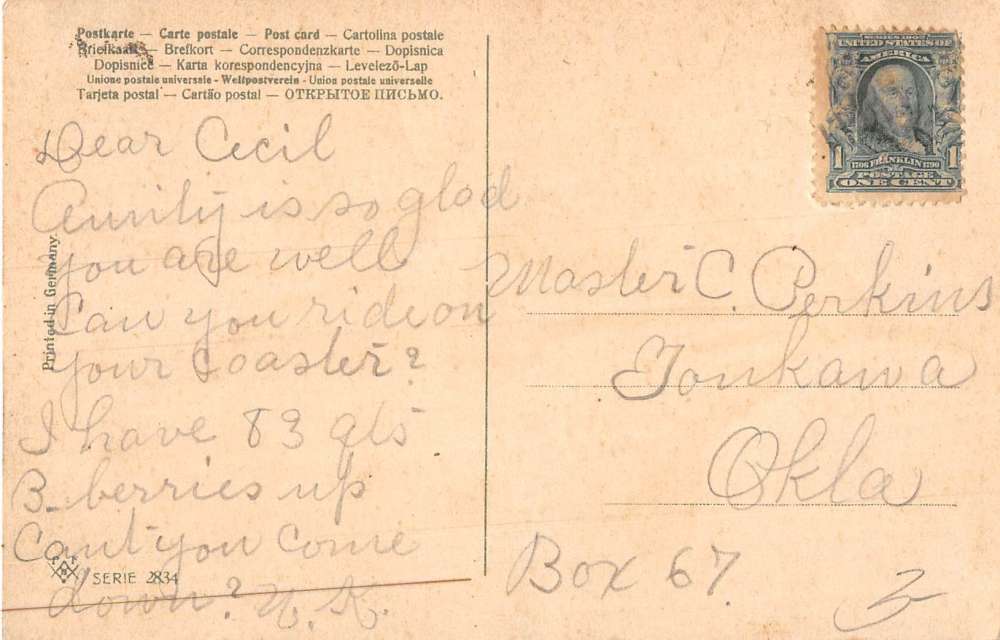 Postkarte — Carte postale — Post card — Cartolina postale
Briefkaart — Brefkort — Correspondenzkarte — Dopisnica
Dopisnice — Karta korespondencyjna — Levelező-Lap
Unione postale universale - Weltpostverein - Union postale universelle
Tarjeta postal — Cartão postal — ОТКРЫТОЕ ПИСЬМО.
SERIES 1902
UNITED STATES OF
AMERICA
1 1706 FRANKLIN 1790 1
POSTAGE
ONE CENT
Dear Cecil
Aunity is so glad
you are well
Can you ride on
your Coaster?
I have 83 qts
B. berries up
Cant you come
down?
Printed in Germany
SERIE 2834
Master C. Perkins
Tonkawa
Okla
Box 67